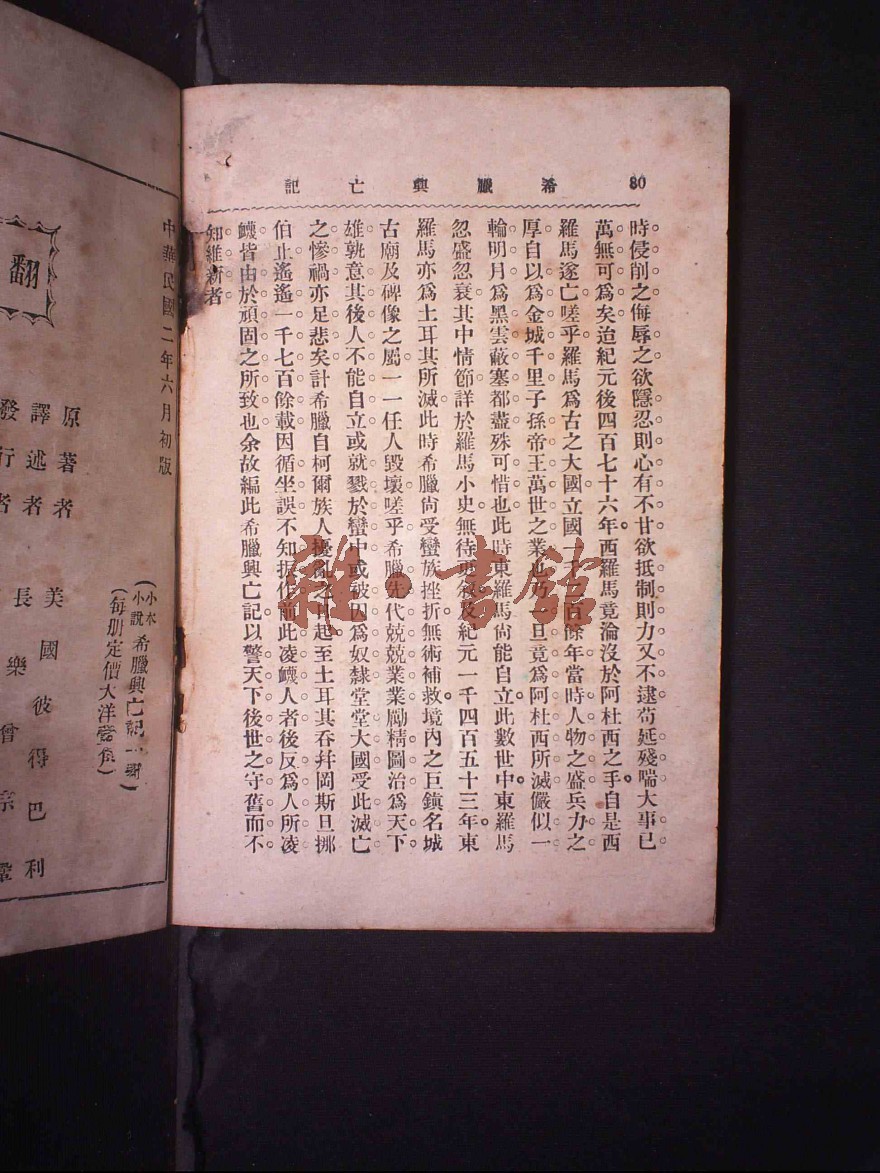 80 希臘興亡記
時侵削之侮辱之欲隱忍則心有不甘欲抵制則力又不逮苟延殘喘大事已
萬無可爲矣迨紀元後四百七十六年西羅馬竟淪沒於阿杜西之手自是西
羅馬遂亡嗟乎羅馬爲古之大國立國一千二百餘年當時人物之盛兵力之
厚自以爲金城千里子孫帝王萬世之業也乃一旦竟爲阿杜西所滅儼似一
輪明月爲黑雲蔽塞都盡殊可惜也此時東羅馬尙能自立此數世中東羅馬
忽盛忽衰其中情節詳於羅馬小史無待更敘及紀元一千四百五十三年東
羅馬亦爲土耳其所滅此時希臘尙受蠻族挫折無術補救境內之巨鎭名城
古廟及碑像之屬一一任人毀壞嗟乎希臘先代兢兢業業勵精圖治爲天下
雄孰意其後人不能自立或就戮於蠻中或被囚爲奴隸堂堂大國受此滅亡
之慘禍亦足悲矣計希臘自柯爾族人擾亂之日起至土耳其吞幷岡斯旦挪
伯止遙遙一千七百餘載因循坐誤不知振作前此凌衊人者後反爲人所凌
衊皆由於頑固之所致也余故編此希臘興亡記以警天下後世之守舊而不
知維新者
雜·書館
中華民國二年六月初版
翻
(小本小說 希臘興亡記一册)
(每册定價大洋壹角)
原著者 美國彼得巴利
譯述者 長樂曾宗鞏
發行者